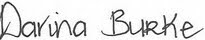 Darina Burke